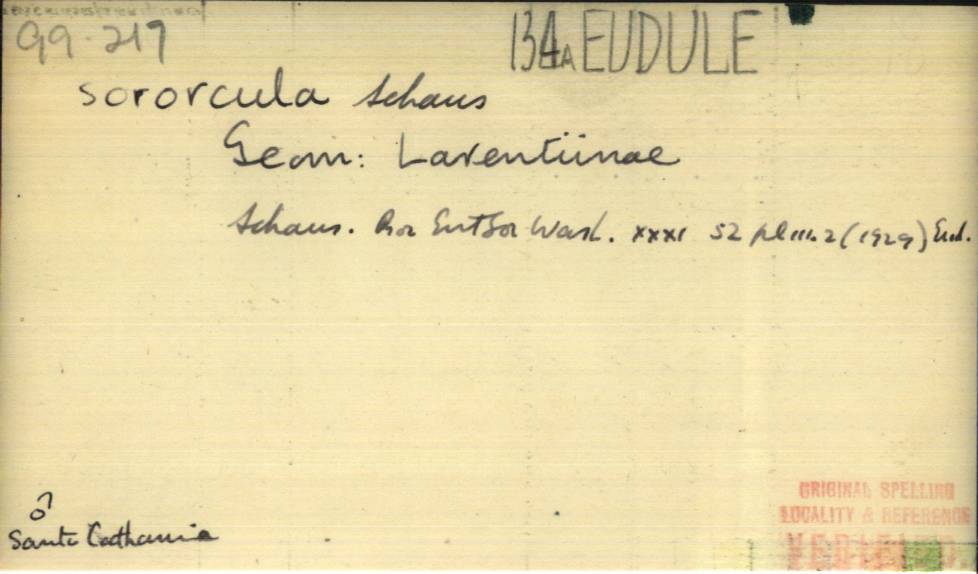 99-217
134A EUDULE
sororcula Schaus
Geom: Larentiinae
Schaus. Proc Ent Soc Wash. xxxi 52 pl iii. 2 (1929) Eud.
♂
Santa Catharina
ORIGINAL SPELLING
LOCALITY & REFERENCE
VERIFIED